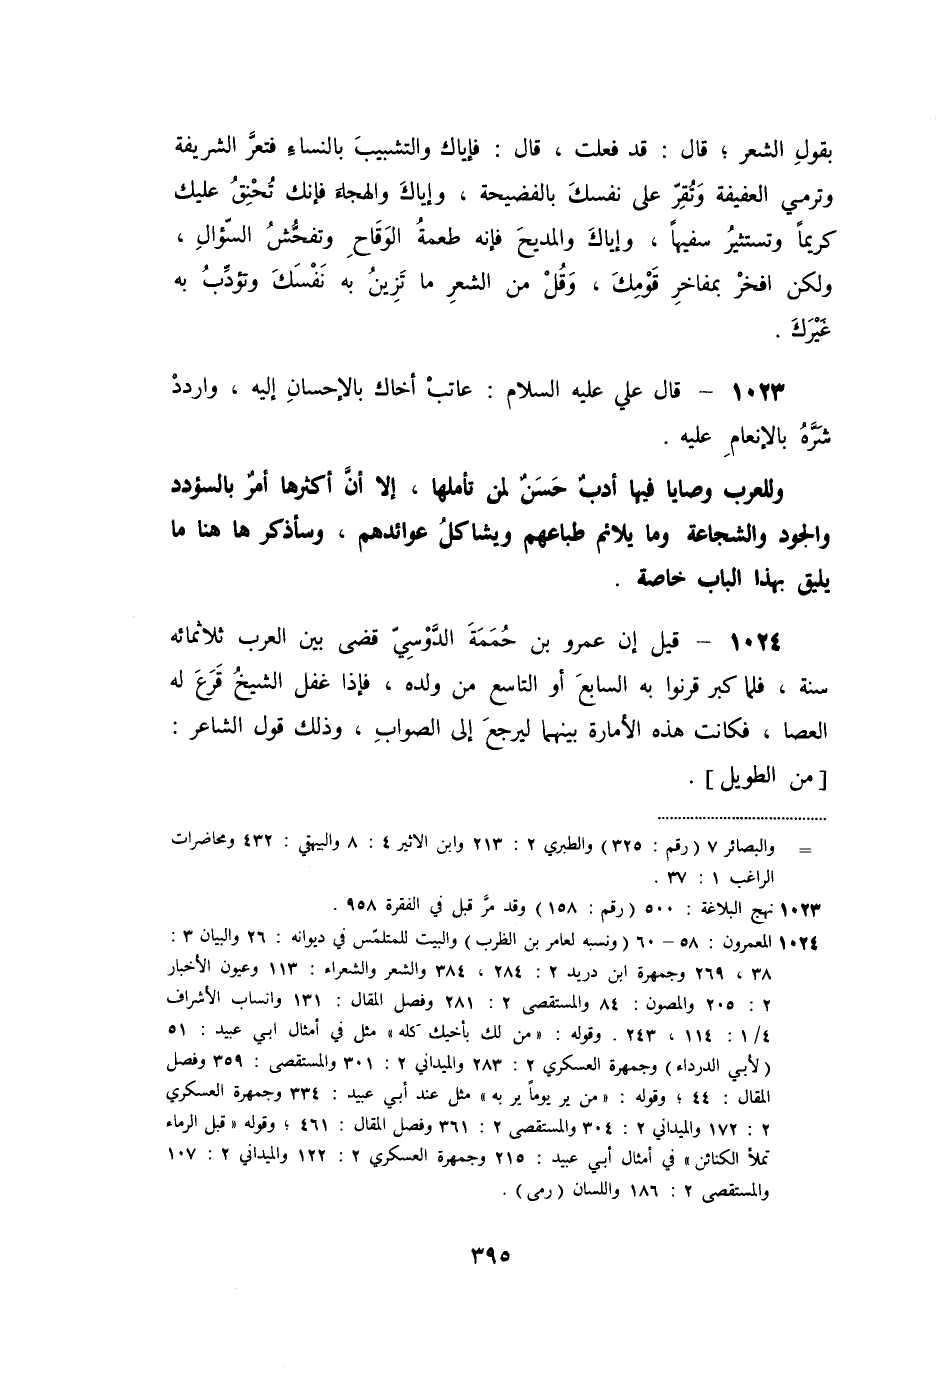 بقولِ الشعر ؛ قال : قد فعلت ، قال : فإياك والتشبيبَ بالنساءِ فتعرَّ الشريفة
وترمي العفيفة وَتُقِرّ على نفسكَ بالفضيحة ، وإياكَ والهجاءَ فإنك تُحْنِقُ عليك
كريماً وتستثيرُ سفيهاً ، وإياكَ والمديحَ فإنه طعمةُ الوَقَاحِ وتفحُّشُ السّؤالِ ،
ولكن افخرْ بمفاخرِ قَوْمِكَ ، وَقُلْ من الشعرِ ما تَزِينُ به نَفْسَكَ وتؤدِّبُ به
غَيْرَكَ .
١٠٢٣ – قال علي عليه السلام : عاتبْ أخاك بالإحسانِ إليه ، وارددْ
شَرَّهُ بالإنعامِ عليه .
وللعرب وصايا فيها أدبٌ حَسَنٌ لمن تأملها ، إلا أنَّ أكثرها أمرٌ بالسؤدد
والجود والشجاعة وما يلائم طباعهم ويشاكلُ عوائدهم ، وسأذكر ها هنا ما
يليق بهذا الباب خاصة .
١٠٢٤ – قيل إن عمرو بن حُمَمَةَ الدَّوْسِيّ قضى بين العرب ثلاثمائه
سنة ، فلما كبر قرنوا به السابعَ أو التاسع من ولده ، فإذا غفل الشيخُ قَرَعَ له
العصا ، فكانت هذه الأمارة بينهما ليرجعَ إلى الصوابِ ، وذلك قول الشاعر :
[ من الطويل ] .
= والبصائر ٧ ( رقم : ٣٢٥ ) والطبري ٢ : ٢١٣ وابن الاثير ٤ : ٨ والبيهقي : ٤٣٢ ومحاضرات
الراغب ١ : ٣٧ .
١٠٢٣ نهج البلاغة : ٥٠٠ ( رقم : ١٥٨ ) وقد مرَّ قبل في الفقرة ٩٥٨ .
١٠٢٤ المعمرون : ٥٨ – ٦٠ ( ونسبه لعامر بن الظرب ) والبيت للمتلمّس في ديوانه : ٢٦ والبيان ٣ :
٣٨ ، ٢٦٩ وجمهرة ابن دريد ٢ : ٢٨٤ ، ٣٨٤ والشعر والشعراء : ١١٣ وعيون الأخبار
٢ : ٢٠٥ والمصون : ٨٤ والمستقصى ٢ : ٢٨١ وفصل المقال : ١٣١ وانساب الأشراف
١/٤ : ١١٤ ، ٢٤٣ . وقوله : « من لك بأخيك كله » مثل في أمثال ابي عبيد : ٥١
( لأبي الدرداء ) وجمهرة العسكري ٢ : ٢٨٣ والميداني ٢ : ٣٠١ والمستقصى : ٣٥٩ وفصل
المقال : ٤٤ ؛ وقوله : « من ير يوماً ير به » مثل عند أبي عبيد : ٣٣٤ وجمهرة العسكري
٢ : ١٧٢ والميداني ٢ : ٣٠٤ والمستقصى ٢ : ٣٦١ وفصل المقال : ٤٦١ ؛ وقوله « قبل الرماء
تملأ الكنائن » في أمثال أبي عبيد : ٢١٥ وجمهرة العسكري ٢ : ١٢٢ والميداني ٢ : ١٠٧
والمستقصى ٢ : ١٨٦ واللسان ( رمى ) .
٣٩٥